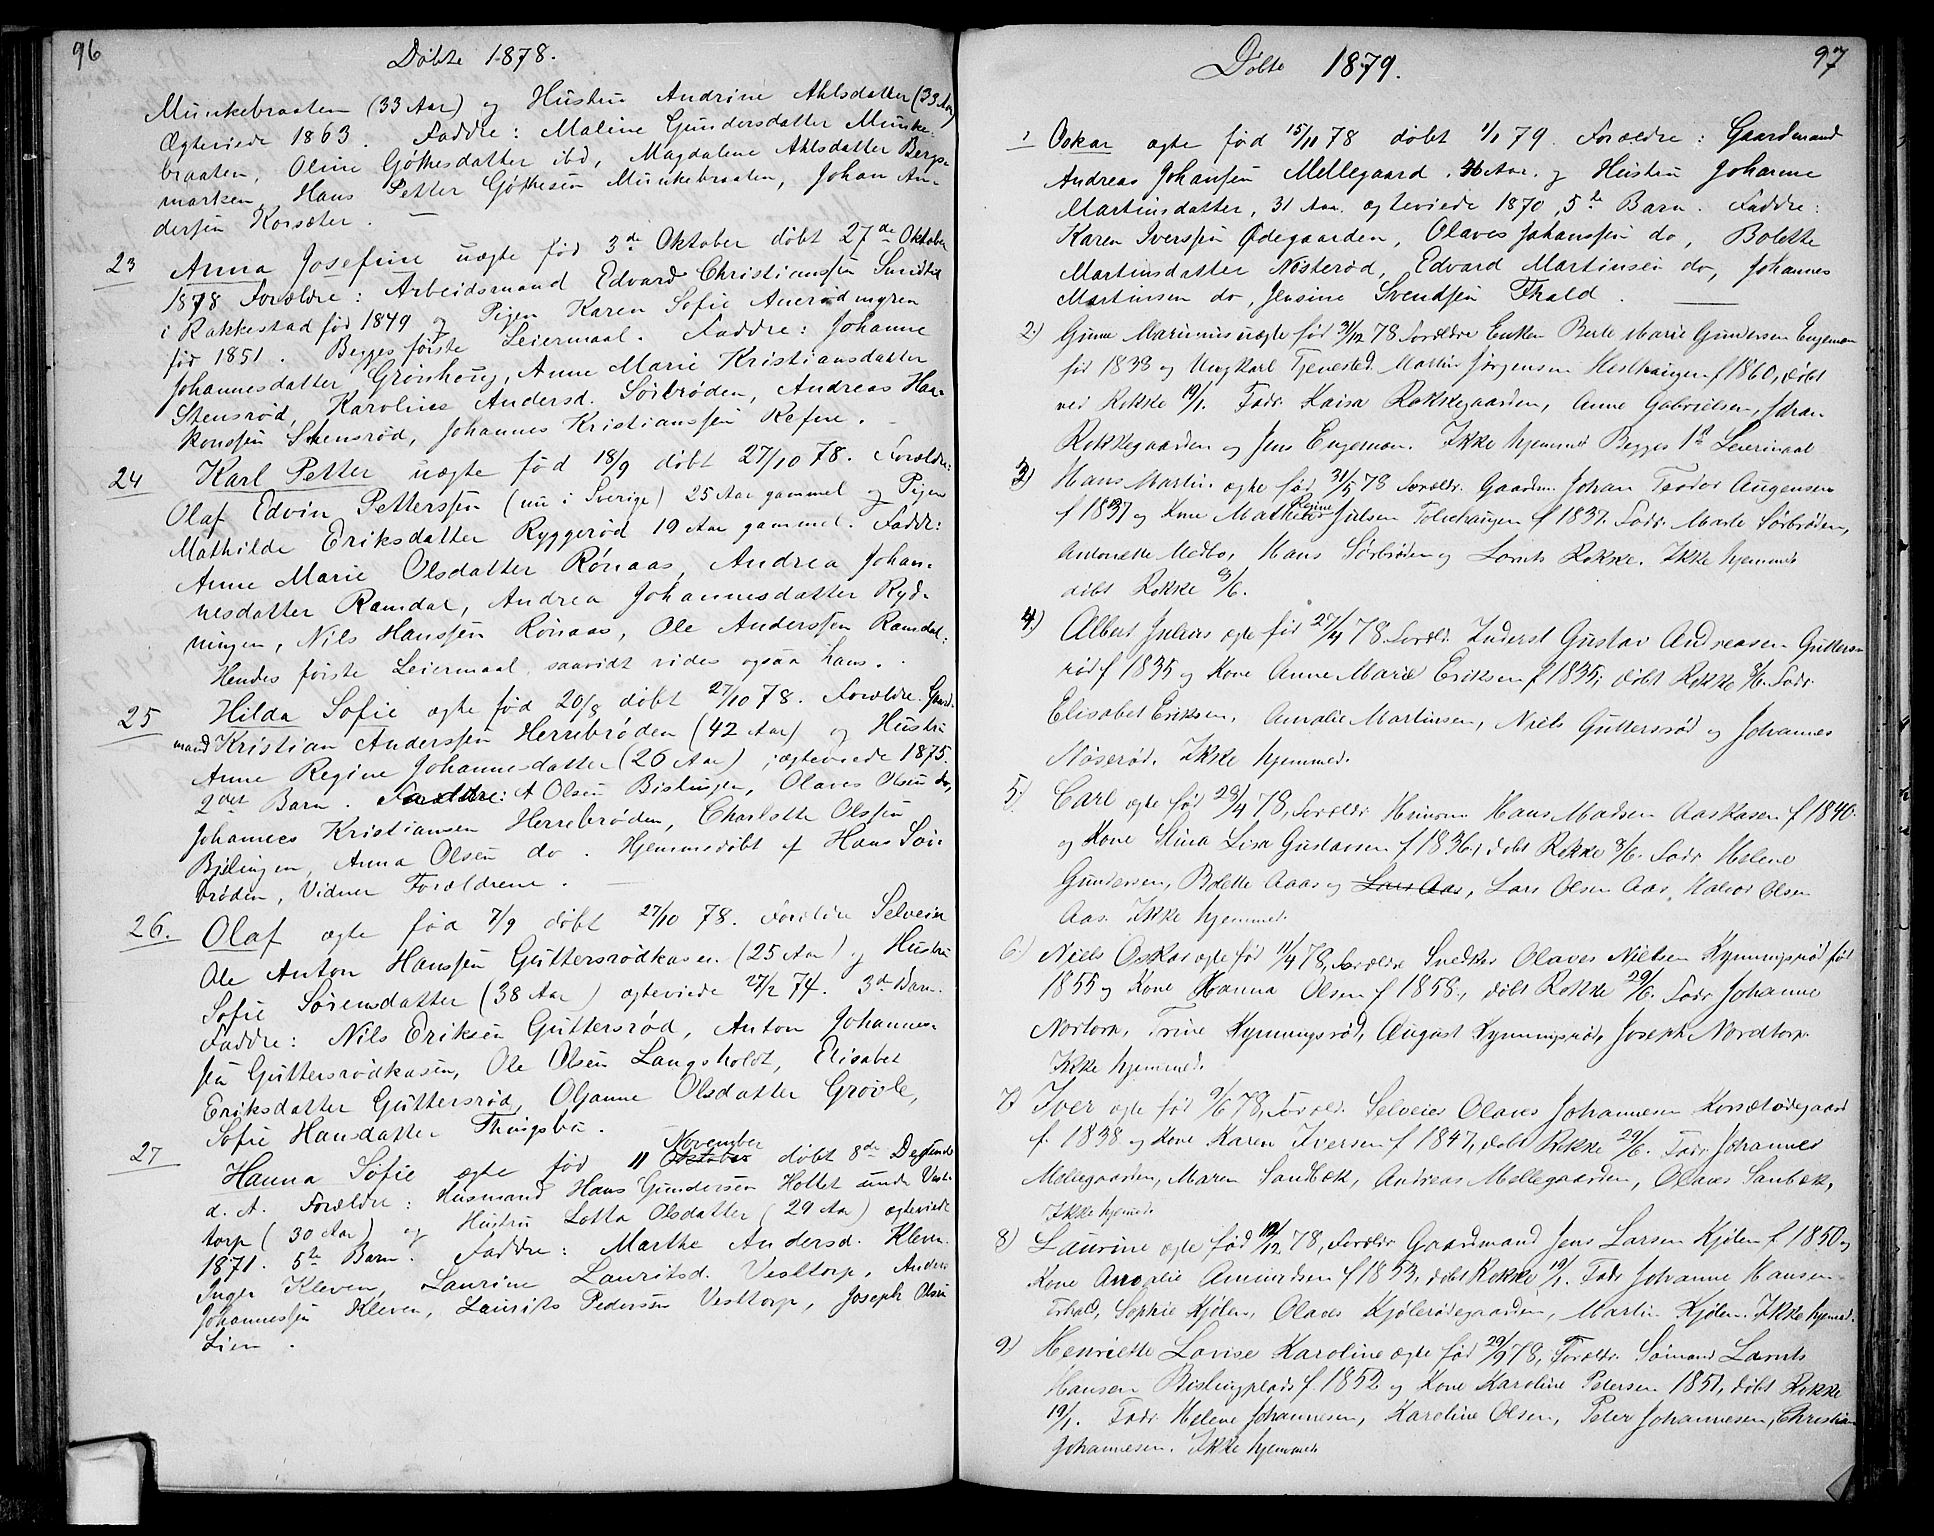 96
Døbte 1878.
Munkebraaten (33 Aar) og Hustru Andrine Ahlsdatter (33 Aar)
Ægteviede 1863. Faddre: Maline Gundersdatter Munke-
braaten, Oline Gøthesdatter ibd, Magdalene Ahlsdatter Bergs-
marken, Hans Petter Gøthesen Munkebraaten, Johan An-
dersen Korsæter.
23 Anna Josefine uægte fød 3de Oktober døbt 27de Oktober
1878 Forældre: Arbeidsmand Edvard Christianssen
i Rakkestad fød 1849 og Pigen Karen Sofie
fød 1851. Begges første Leiermaal. Faddre: Johanne
Johannesdatter Grønhoug, Anne Marie Kristiansdatter
Stensrød, Karoline Andersd. Sörbrøden, Andreas Haa-
konssen Stensrød, Johannes Kristianssen Refne.
24 Karl Petter uægte fød 18/9 døbt 27/10 78. Forældre:
Olaf Edvin Petterssen (nu i Sverige) 25 Aar gammel og Pigen
Mathilde Eriksdatter Ryggerød 19 Aar gammel. Faddr:
Anne Marie Olsdatter Rønaas, Andrea Johan-
nesdatter Ramdal, Andrea Johannesdatter Ryd-
ningen, Nils Hanssen Rønaas, Ole Anderssen Ramdal.
Hendes første Leiermaal saavidt vides ogsaa hans.
25 Hilda Sofie ægte fød 20/8 døbt 27/10 78. Forældre. Gaard-
mand Kristian Anderssen Herrebrøden (42 Aar) og Hustru
Anne Regine Johannesdatter (26 Aar), ægteviede 1875.
2det Barn. Faddre: A Olsen Bislingen, Olaves Olsen do,
Johannes Kristiansen Herrebrøden, Charlotte Olssen
Bjslingen, Anna Olsen do. Hjemmedøbt af Hans Sör-
brøden, Vidner Forældrene.
26. Olaf ægte fød 7/9 døbt 27/10 78. Forældre Selveier
Ole Anton Hanssen Guttersrødkasen (25 Aar) og Hustru
Sofie Sørensdatter (38 Aar) ægteviede 27/2 74. 3de Barn.
Faddre: Nils Eriksen Guttersrød, Anton Johannes-
sen Guttersrødkasen, Ole Olsen Langsholdt, Elisabet
Eriksdatter Guttersrød, Oljanne Olsdatter Grøvle,
Sofie Hansdatter Thingsbø.
27 Hanna Sofie ægte fød 11 November Oktober døbt 8de December
d. A. Forældre: Husmand Hans Gundersen Holtet under Vest-
torp (30 Aar) og Hustru Lotta Olsdatter (29 Aar) ægteviede
1871. 5te Barn. Faddre: Marthe Andersd. Kleven
Inger Kleven, Laurine Lauritsd. Vesttorp, Anders
Johannessen Kleven, Laurits Pedersen Vesttorp, Joseph Olsen
Lien.
97
Døbte 1879.
1 Oskar ægte fød 15/11 78 døbt 1/1 79. Forældre: Gaardmand
Andreas Johansen Mellegaard. Aar. og Hustru Johanne
Martinsdatter, 31 Aar. ægteviede 1870, 5te Barn. Faddre:
Karen Iverssen Ødegaarden, Olaves Johanssen do, Bolette
Martinsdatter Nøsterød, Edvard Martinsen do, Johannes
Martinsen do, Jensine Svendsen Fhald.
2) Gunne Marinius uægte fød 31/12 78 Forældre Enken Berte Marie Gundersen Engemoen
fød 1838 og Ungkarl Tjenested. Martin Jörgensen Hesthaugen f 1860, døbt
ved Rokke 19/1. Fadr. Kaisa Rokkegaarden, Anne Gabrielsen, Johan
Rokkegaarden og Jens Engemoen. Ikke hjemmed Begges 1ste Leiermaal
3) Hans Martin ægte fød 31/5 78 Forældr. Gaardm. Johan Teodor Augensen
f 1837 og Kone Mathea Regine Julsen Tolsehaugen f 1837. Fadr. Marte Sørbrøden,
Antonette Medbø, Hans Sörbrøden og Lornts Rokke. Ikke hjemmed
døbt Rokke 9/6.
4) Albert Julius ægte fød 27/4 78 Forældr. Inderst Gustav Andreasen Gutters-
rød f 1835 og Kone Anne Marie Eriksen f 1835, døbt Rokke 9/6. Fadr
Elisabet Eriksen, Amalie Martinsen, Niels Guttersrød og Johannes
Nøserød. Ikke hjemmed.
5) Carl ægte fød 28/4 78, Forældr Husm Hans Madsen Aaskasen f 1840
og Kone Stina Lisa Gustavsen f 1836, døbt Rokke 9/6. Fadr Helene
Gundersen, Bolette Aas og Lars Aas, Lars Olsen Aas, Halvor Olsen
Aas. Ikke hjemmed.
6) Niels Oskar ægte fød 11/4 78, Forældre Snedker Olaves Nielsen Kynningsrød fød
1855 og Kone Hanna Olsen f 1858, døbt Rokke 29/6. Fadr Johanne
Nortorp, Trine Kynningsrød, August Kynningsrød, Joseph Nordtorp.
Ikke hjemmed.
7) Iver ægte fød 9/6 78, Foræld. Selveier Olaves Johannesen Korsætødegaard
f. 1838 og Kone Karen Iversen f 1847, døbt Rokke 29/6. Fadr Johannes
Mellegaarden, Maren Sandbæk, Andreas Mellegaarden, Olaves Sanbæk,
Ikke hjemmed.
8) Laurine ægte fød 12/12 78, Forældr Gaardmand Jens Larsen Kjølen f 1850 og
Kone Amalie Amundsen f 1853, døbt Rokke 19/1. Fadr Johanne Hansen
Sophie Kjølen, Olaves Kjølerødegaarden, Martin Kjølen. Ikke hjemmed.
9) Henriette Lovise Karoline ægte fød 29/9 78, Forældr. Sømand Lornts
Hansen Bislingplads f. 1852 og Kone Karoline Petersen 1851, døbt Rokke
19/1. Fadr. Helene Johannesen, Karoline Olsen, Peter Johannesen, Christian
Johannesen. Ikke hjemmed.